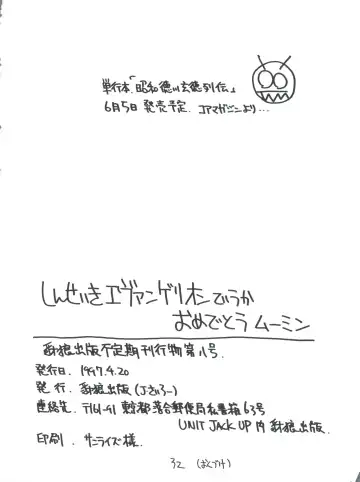 単行本「昭和徳川玄徳列伝」
6月5日 発売予定. コアマガジンより…
しんせいきエヴァンゲリオンていうか
おめでとう ムーミン
出版不定期刊行物第八号.
発行日. 1997.4.20
発 行. 出版
連絡先. 〒161-91 東京都落合郵便局私書箱63号
UNIT JACK UP内 出版.
印刷. サンライズ様.
32 (おくづけ)